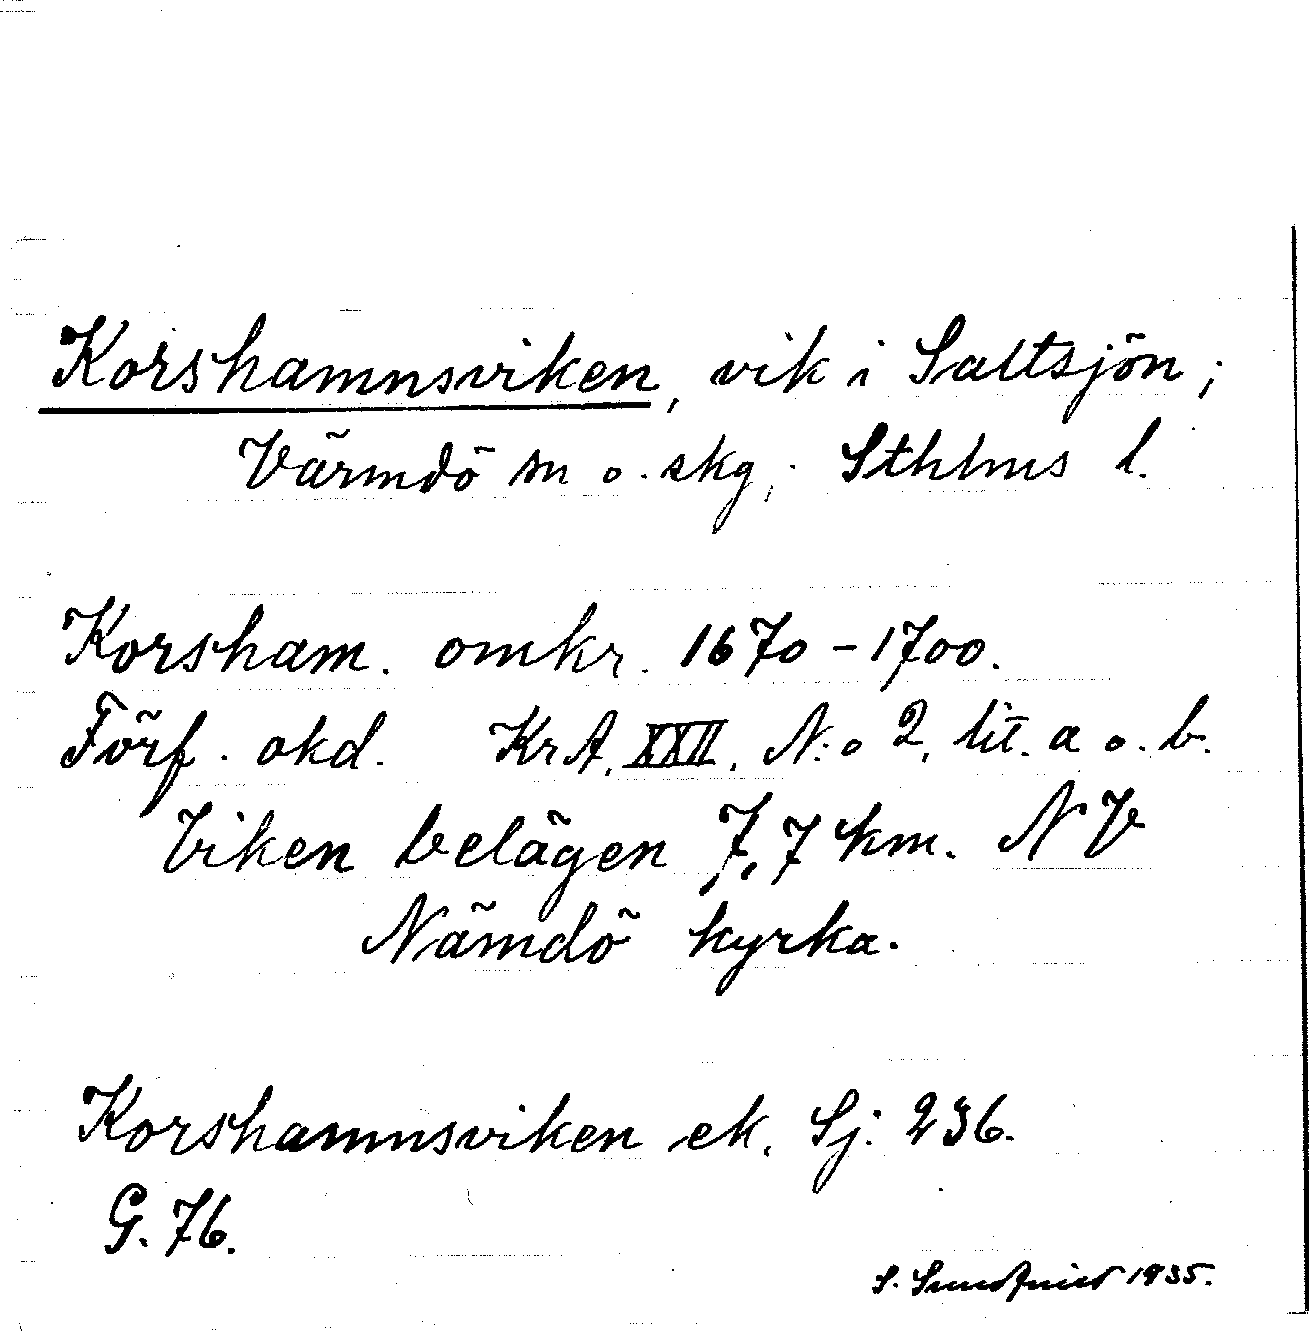 Korshamnsviken, vik i Saltsjön;
Värmdö sn o. skg; Sthlms l.
Korsham. omkr. 1670-1700.
Förf. okd. KrA. XXII. N:o 2, lit. a o. b.
Viken belägen 7,7 km. NV
Nämdö kyrka.
Korshamnsviken ek. Sj: 236.
G. 76.
S. Sundquist 1935.